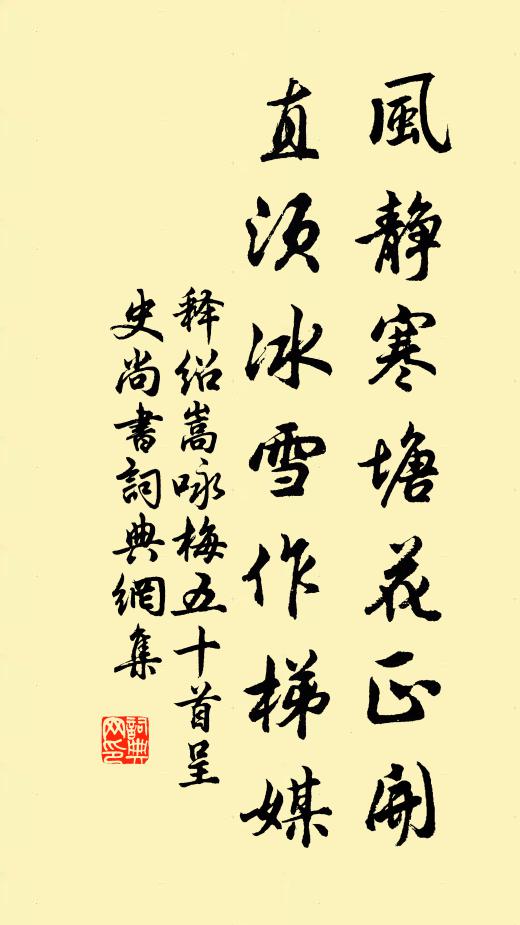 風静寒塘花正開
直須冰雪作梯媒
释紹嵩咏梅五十首呈
史尚書詞典網集
詞典
网印